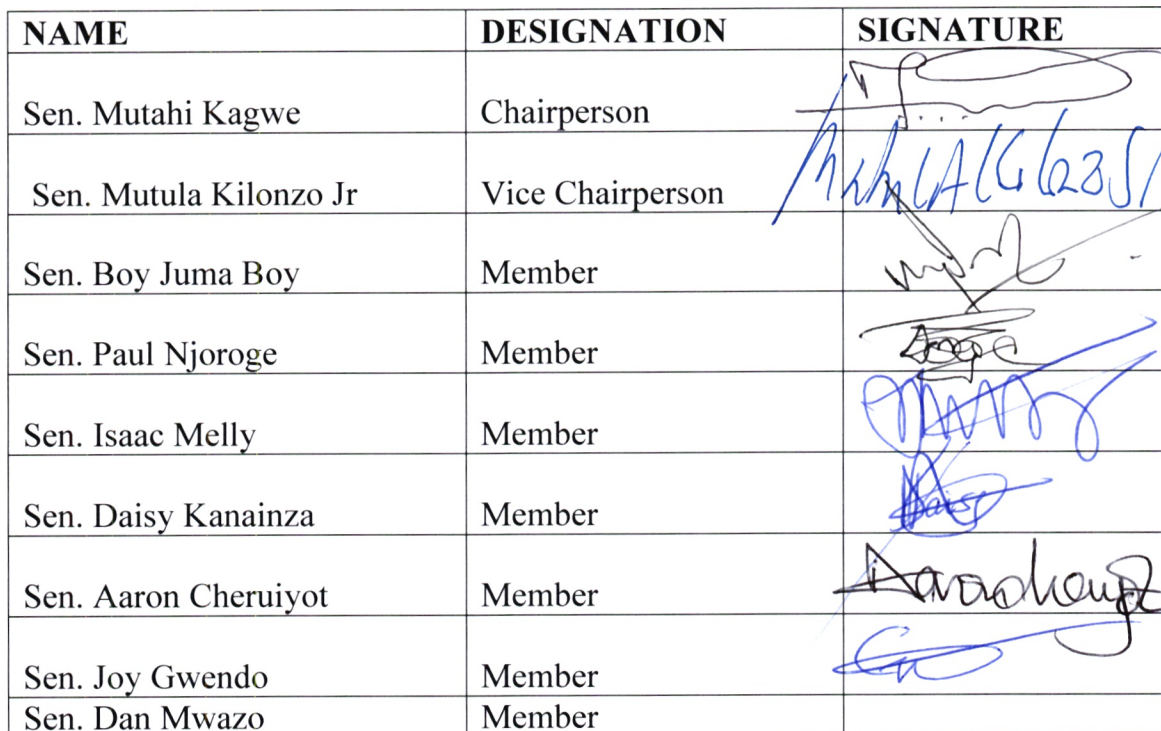 NAME DESIGNATION SIGNATURE
Sen. Mutahi Kagwe Chairperson
Sen. Mutula Kilonzo Jr Vice Chairperson
Sen. Boy Juma Boy Member
Sen. Paul Njoroge Member
Sen. Isaac Melly Member
Sen. Daisy Kanainza Member Daisy
Sen. Aaron Cheruiyot Member
Sen. Joy Gwendo Member
Sen. Dan Mwazo Member